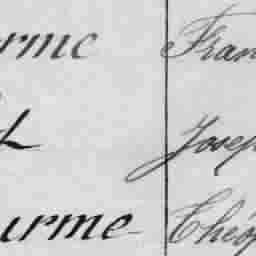 rme Fran
t Josep
urme Théop